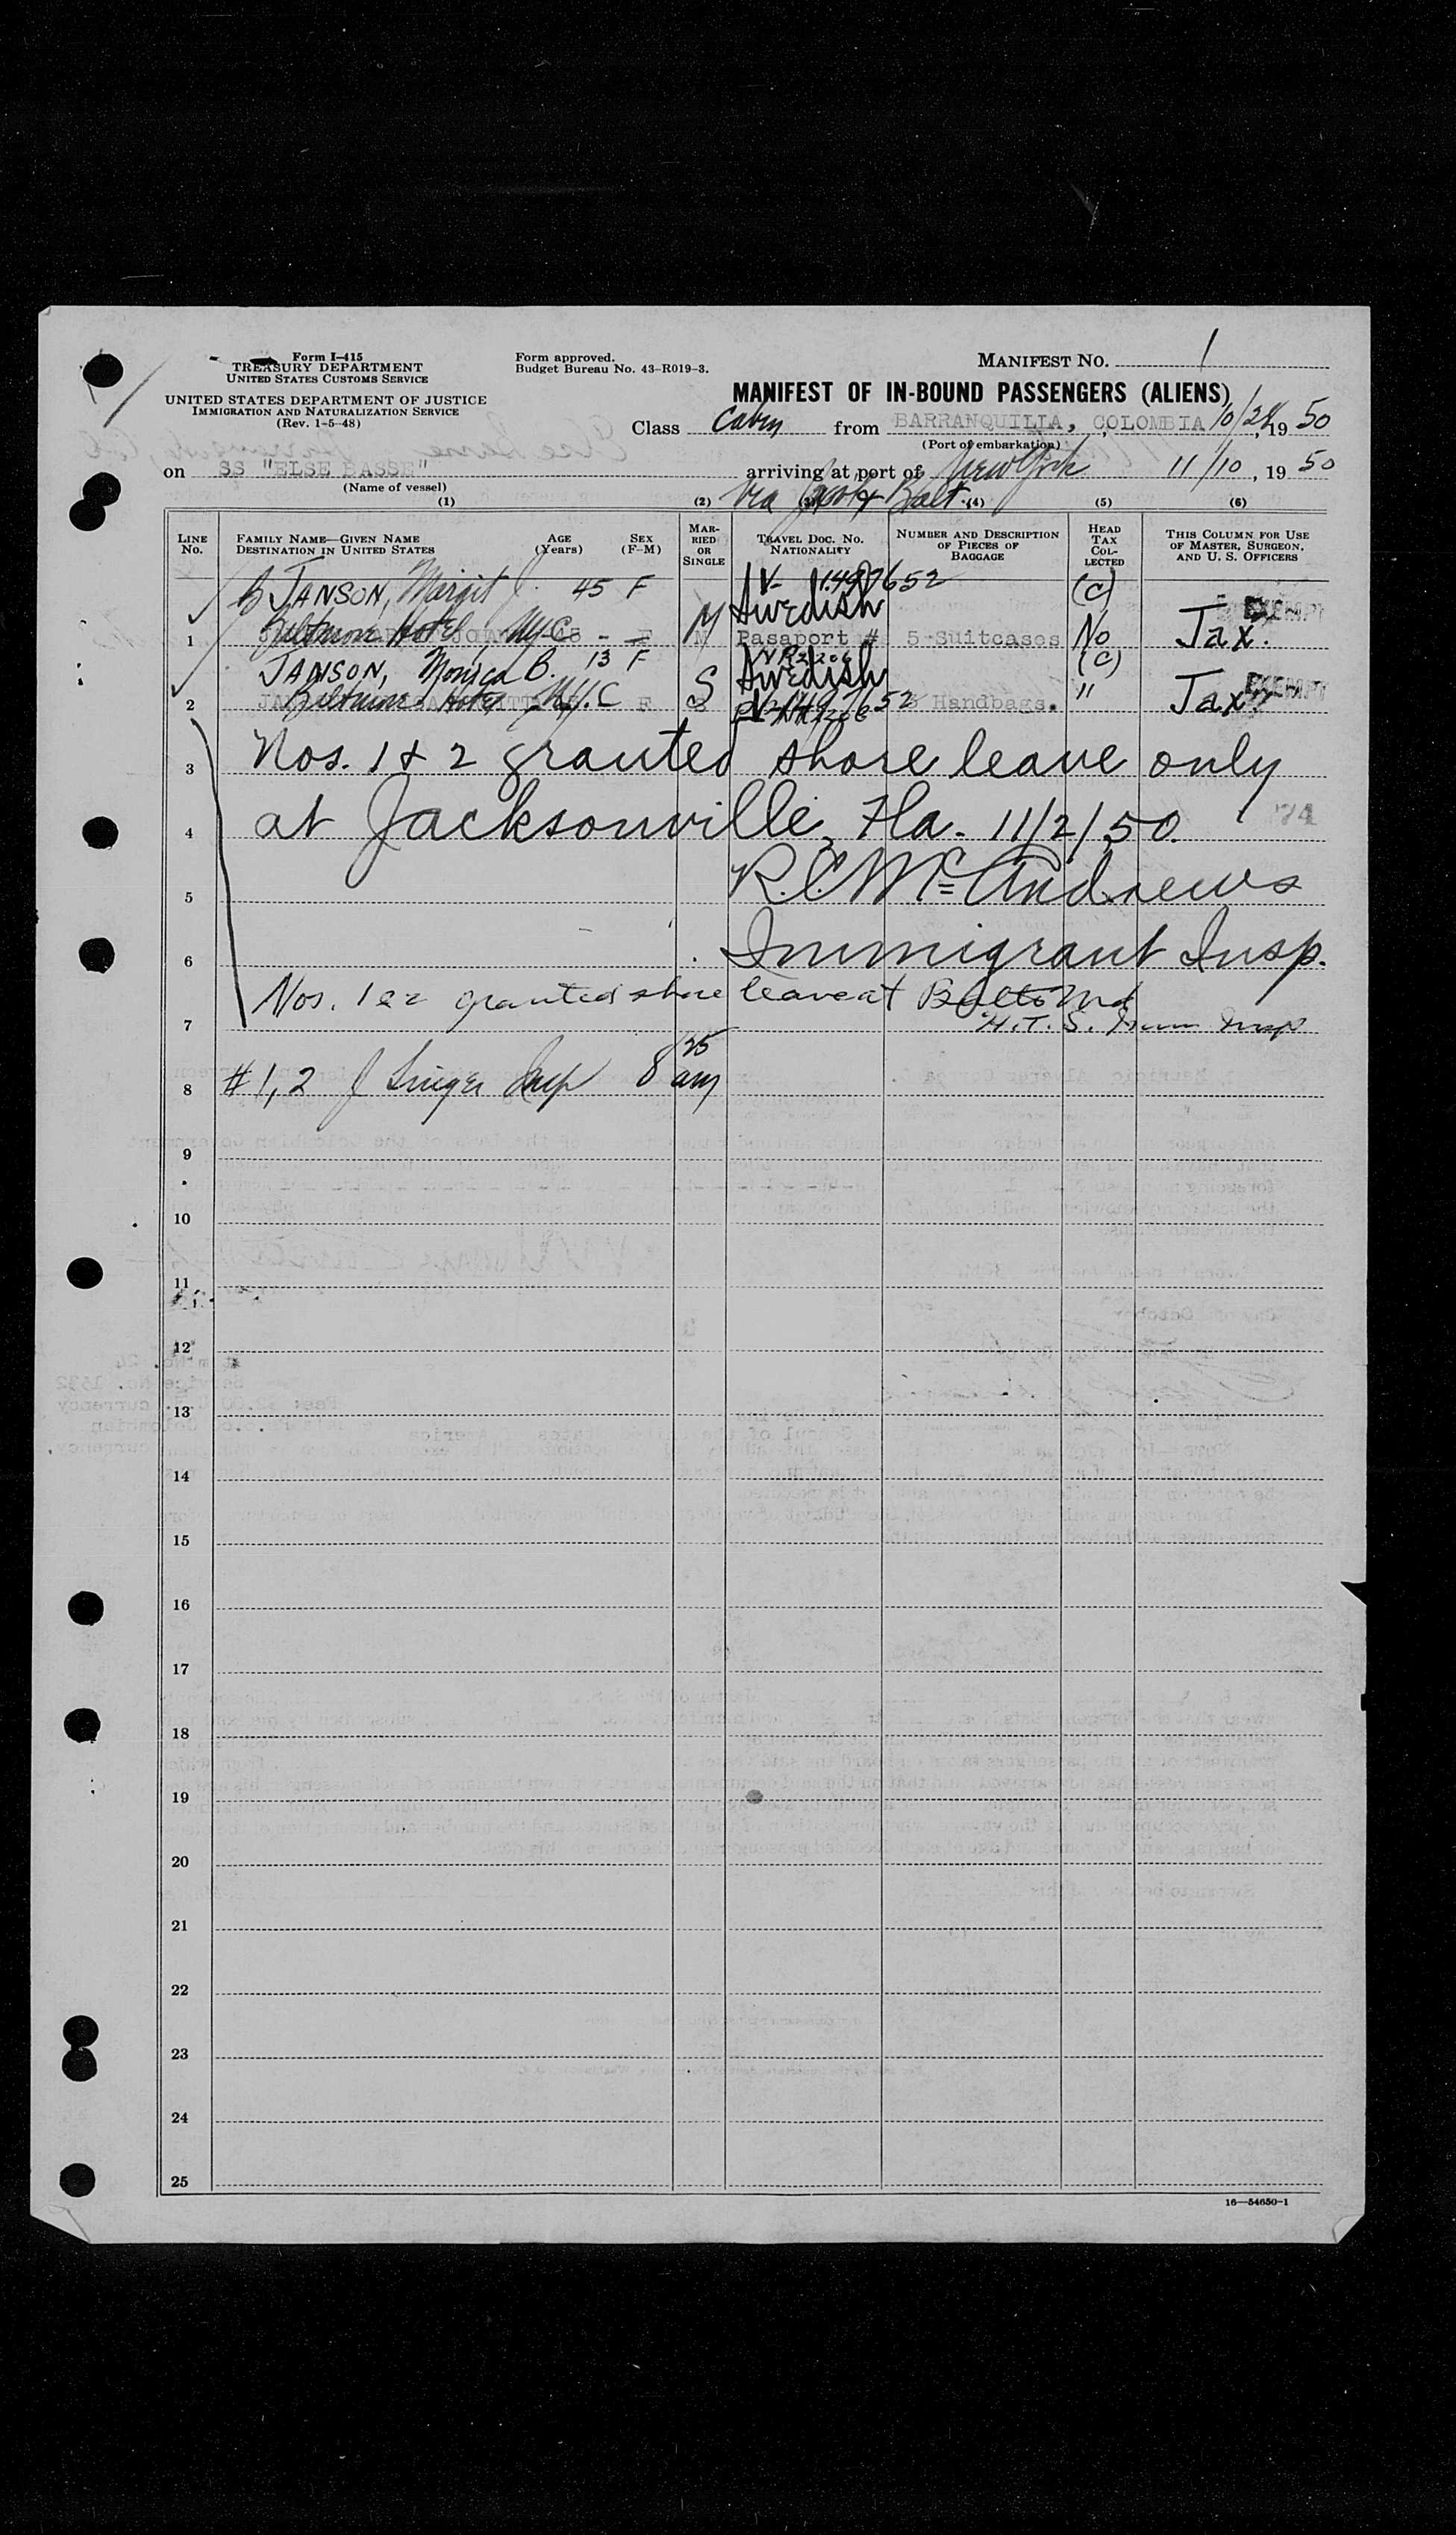 Form I-415
TREASURY DEPARTMENT
UNITED STATES CUSTOMS SERVICE
UNITED STATES DEPARTMENT OF JUSTICE
IMMIGRATION AND NATURALIZATION SERVICE
(Rev. 1-5-48)
Form approved.
Budget Bureau No. 43-R019-3.
MANIFEST NO. 1
MANIFEST OF IN-BOUND PASSENGERS (ALIENS)
Class Cabin from BARRANQUILLA, COLOMBIA, 10/24, 19 50
(Port of embarkation)
on SS "ELSE BASSE" arriving at port of New York 11/10, 19 50
(Name of vessel)
via Balt.
(1) (2) (3) (4) (5) (6)
LINE No. FAMILY NAME—GIVEN NAME DESTINATION IN UNITED STATES AGE (Years) SEX (F-M) MARRIED OR SINGLE TRAVEL DOC. NO. NATIONALITY NUMBER AND DESCRIPTION OF PIECES OF BAGGAGE HEAD TAX COLLECTED THIS COLUMN FOR USE OF MASTER, SURGEON, AND U. S. OFFICERS
JANSON, Margit J. 45 F V- 1497652 (C)
Swedish EXEMPT
1 Biltmore Hotel NYC M Pasaport # 5 Suitcases No Jax.
JANSON, Monica B. 13 F (C)
Swedish EXEMPT
2 Biltmore Hotel N.Y.C S Handbags. " Jax
3 Nos. 1 & 2 granted shore leave only
4 at Jacksonville, Fla. 11/2/50. 74
5 R.C. McAndrews
6 Immigrant Insp.
7 Nos. 1 & 2 granted shore leave at Balto Md
H.T.S. Imm Insp
8 #1, 2 J Singer Insp 8 25 am
9
10
11
12
13
14
15
16
17
18
19
20
21
22
23
24
25
16—54650-1